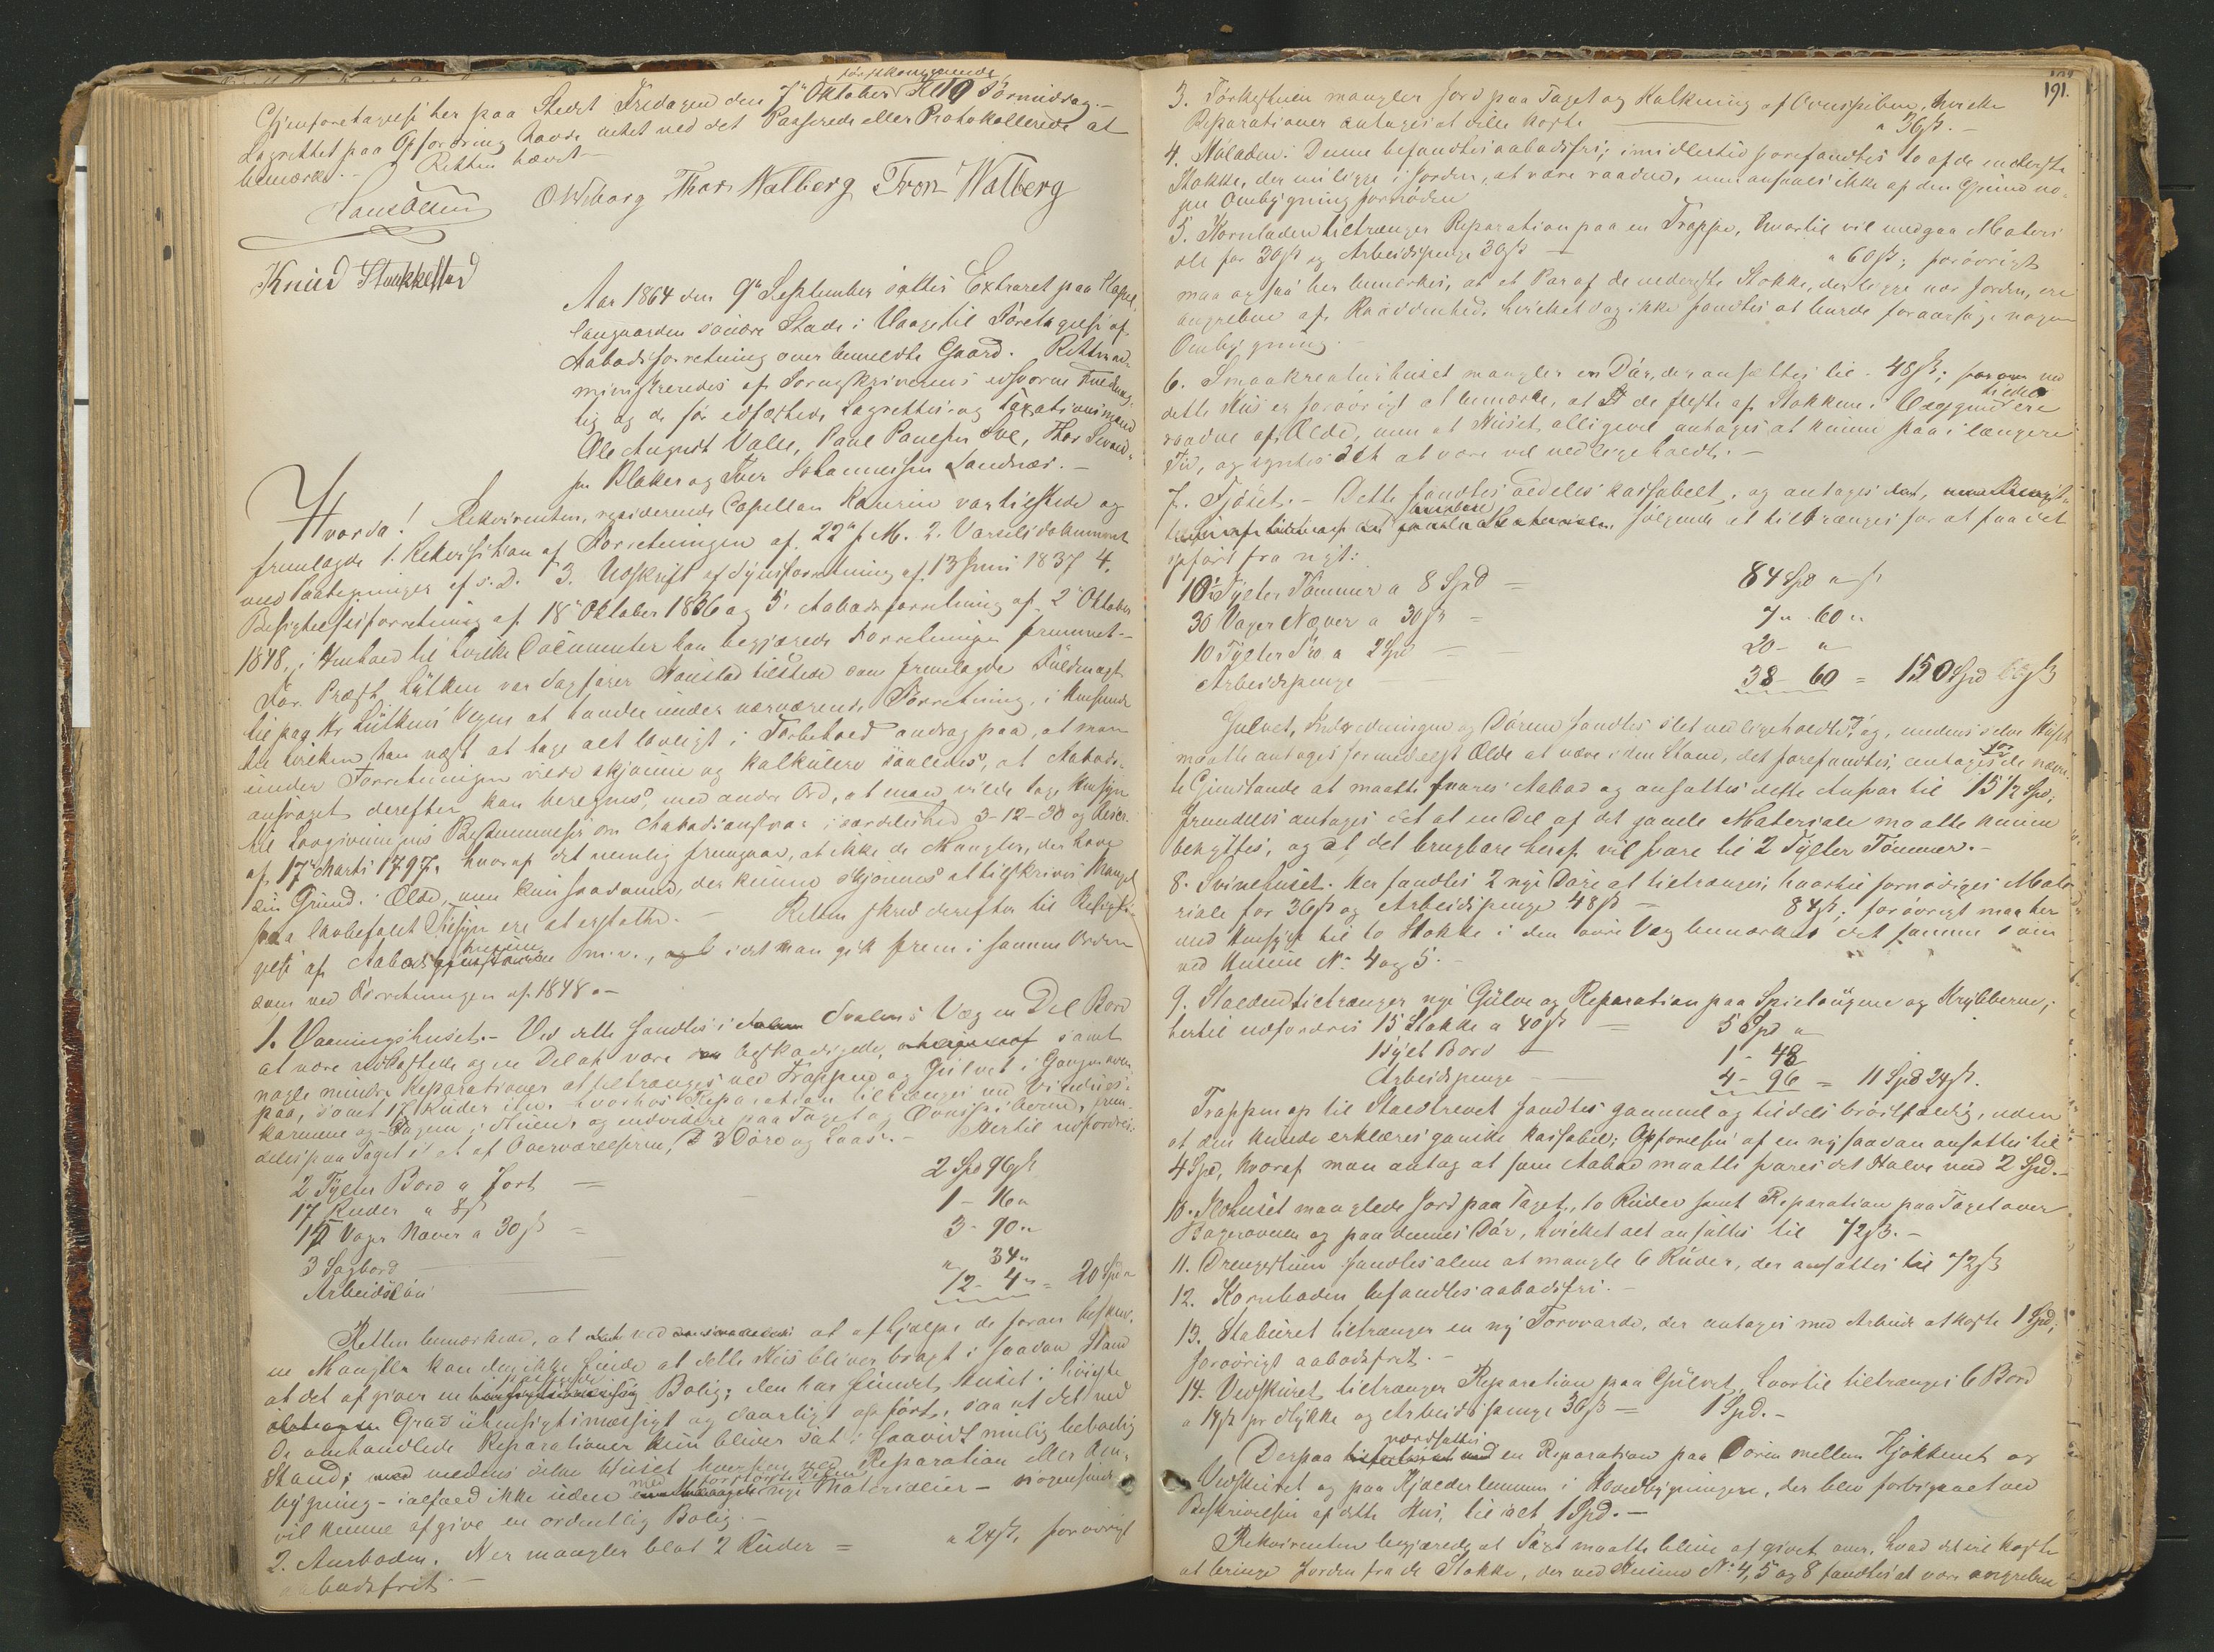 førstkommende
Gjenforetagelse her paa Stedet Fredagen den 7de Oktober Kl 10 Formiddag.-
Lagrettet paa Opfordring havde intet ved det Passerede eller Protokollerede at
bemærke.- Retten hævet-
Hans Olsen O Wiborg Thor Walberg Tron Walberg
Knud Stakkestad
Aar 1864 den 9de September sattes Extraret paa Kapel-
langaarden søndre Stade i Vaage til Foretagelse af
Aabodsforretning over bemeldte Gaard. Retten ad-
ministreredes af Sorenskriverens edsvorne Fuldmæg-
tig og de før edfæstede Lagrettes- og Taxationsmænd
Ole August Valle, Paul Paulsen Sve, Thor Sevald-
sen Blaker og Iver Johannessen Sandnæs.-
Hvorda! Rekvirenten, residerende Capellan Kaurin var tilstede og
fremlagde 1. Rekvisition af Forretningen af 22de f. M. 2. Varselsdokument
med Paategninger af s. D. 3. Udskrift af Synsforretning af 13 Juni 1837 4.
Besigtelsesforretning af 18de Oktober 1836 og 5. Aabodsforretning af 2de Oktober
1848, i Henhold til hvilke Documenter han begjærede Forretningen fremmet.-
For Præst Lütken var Sagfører Naustad tilstede som fremlagde Fuldmagt
til paa Hr Lütkens Vegne at handle under nærværende Forretning, i Henseende
til hvilken han næst at tage alt lovligt i Forbehold androg paa, at man
under Forretningen vilde skjønne og kalkulere saaledes, at Aabods-
ansvaret derefter kan beregnes, med andre Ord, at man vilde tage Hensyn
til Lovgivningens Bestemmelser om Aabodsansvar i særdeleshed 3-12-30 og Rescr.
af 17de Marts 1797, hvoraf det nemlig fremgaar, at ikke de Mangler, der have
sin Grund i Ælde, men kun saadanne, der kunne skjønnes at tilskrives Mangel
paa lovbefalet Tilsyn ere at erstatte.- Retten skred derefter til Besigti-
gelse af Aabods husene m.v., idet man gik frem i samme Orden
som ved Forretningen af 1848.-
1. Vaaningshuset.- Ved dette fandtes i Svalens Væg en Del Bord
at være udkastede og en Del at være beskadigede, samt
nogle mindre Reparationer at tiltrænges ved Trappen og Gulvet i Gangen oven
paa, samt 17 Ruder itu, hvorhos Reparation tiltrænges ved Vindues-
karmene og endvidere paa Taget og Ovnspiberne, frem-
deles paa Taget i et af Overværelserne, 3 Døre og Laase.- Hertil udfordres:
2 Tylter Bord a 1 ort = 2 Spd 96 ß
17 Ruder a 8 ß 1 - 16 "
15 Voger Næver a 30 ß = 3 - 90 "
3 Sagbord " 34 "
Arbeidsløn 12 - 4 " = 20 Spd "
Retten bemærkede, at ved at afhjælpe de foran beskrev-
ne Mangler kan den ikke finde at dette Huus bliver bragt i saadan Stand
at det afgiver en Bolig; den har fundet Huset i høieste
Grad uhensigtsmæssigt og daarligt opført, saa at det ved
de omhandlede Reparationer kun bliver sat i saavidt mulig beboelig
Stand; medens selve Huset hverken ved Reparation eller Om-
bygning - ialfald ikke uden med for største Delen nye Materialier - nogensinde
vil kunne afgive en ordentlig Bolig.-
2. Aurboden. Her mangler blot 2 Ruder = " 24 ß, forøvrigt
aabodsfrit.-
191.
3. Tørkestuen mangler Jord paa Taget og Kalkning af Ovnspiben, hvilke
Reparationer antages at ville koste " 36 ß.-
4. Høladen: Denne befandtes aabodsfri; imidlertid forefandtes to af de underste
Stokke, der nu ligge i Jorden, at være raadne, men ansaaes ikke af den Grund no-
gen Ombygning fornøden
5. Kornladen tiltrænger Reparation paa en Trappe, hvortil vil medgaa Materi
ale for 30 ß og Arbeidspenge 30 ß " 60 ß; forøvrigt
maa ogsaa her bemærkes, at et Par af de nederste Stokke, der ligge nær Jorden, ere
angrebne af Raaddenhed, hvilket dog ikke fandtes at burde foraarsage nogen
Ombygning.-
6. Smaakreaturhuset mangler en Dør, der ansættes til - 48 ß; ved
dette Hus er forøvrigt at bemærke, at de fleste af Stokkene i Væggen tildels ere
raadne af Ælde, men at Huset alligevel antages at kunne staa i længere
Tid, og syntes det at være vel vedligeholdt.-
7. Fjøset.- Dette fandtes aldeles kassabelt, og antages
følgende at tiltrænges for at faa det
opført fra nyt:
10½ Tylter Tømmer a 8 Spd = 84 Spd " ß
30 Voger Næver a 30 ß = 7 " 60 "
10 Tylter Tro a 2 Spd 20 - "
Arbeidspenge 38 - 60 = 150 Spd
Gulvet, Indredningen og Dørene fandtes slet vedligeholdte, og, medens selve Huset
maatte antages formedelst Ælde at være i den Stand, det forefandtes, antages for de nævn-
te Gjenstande at maatte svares Aabod og ansattes dette Ansvar til 15½ Spd;
fremdeles antages det at en Del af det gamle Materiale maatte kunne
benyttes, og at det brugbare heraf vil svare til 2 Tylter Tømmer.-
8. Svinehuset. Her fandtes 2 nye Døre at tiltrænges, hvortil fornødiges Mate
riale for 36 ß og Arbeidspenge 48 ß = 84 ß; forøvrigt maa her
med Hensyn til to Stokke i den øvre Væg bemærkes det samme som
ved Husene No 4 og 5.-
9. Stalden tiltrænger nye Gulve og Reparation paa Spiltougene og Krybberne;
hertil udfordres 15 Stokke a 40 ß = 5 Spd "
1 Tylt Bord 1 - 48
Arbeidspenge 4 - 96 = 11 Spd 24 ß.
Trappen op til Staldtrevet fandtes gammel og tildels brøstfældig, uden
at den kunde erklæres ganske kassabel; Opførelsen af en ny saadan ansattes til
4 Spd, hvoraf man antog at som Aabod maatte svares det Halve med 2 Spd.-
10. Ildhuset manglede Jord paa Taget, to Ruder samt Reparation paa Taget over
Bagerovnen og paa dennes Dør, hvilket alt ansattes til 72 ß.-
11. Drengestuen fandtes alene at mangle 6 Ruder, der ansattes til 72 ß
12. Kornboden befandtes aabodsfri.-
13. Staburet tiltrænger en ny Forvarde, der antages med Arbeide at koste 1 Spd;
forøvrigt aabodsfrit.-
14. Vedskuret tiltrænger Reparation paa Gulvet, hvortil tiltrænges 6 Bord
a 14 ß pr Stykke og Arbeidspenge 36 ß = 1 Spd.-
Derpaa værdsattes en Reparation paa Døren mellem Kjøkkenet og
Vedskuret og paa Kjælderlemmen i Hovedbygningen, der blev forbigaaet ved
Beskrivelsen af dette Hus, til ialt 1 Spd.-
Rekvirenten begjærede at Taxt maatte blive afgivet over, hvad det vil koste
at bringe Jorden fra de Stokke, der ved Husene No 4, 5 og 8 fandtes at være angrebne